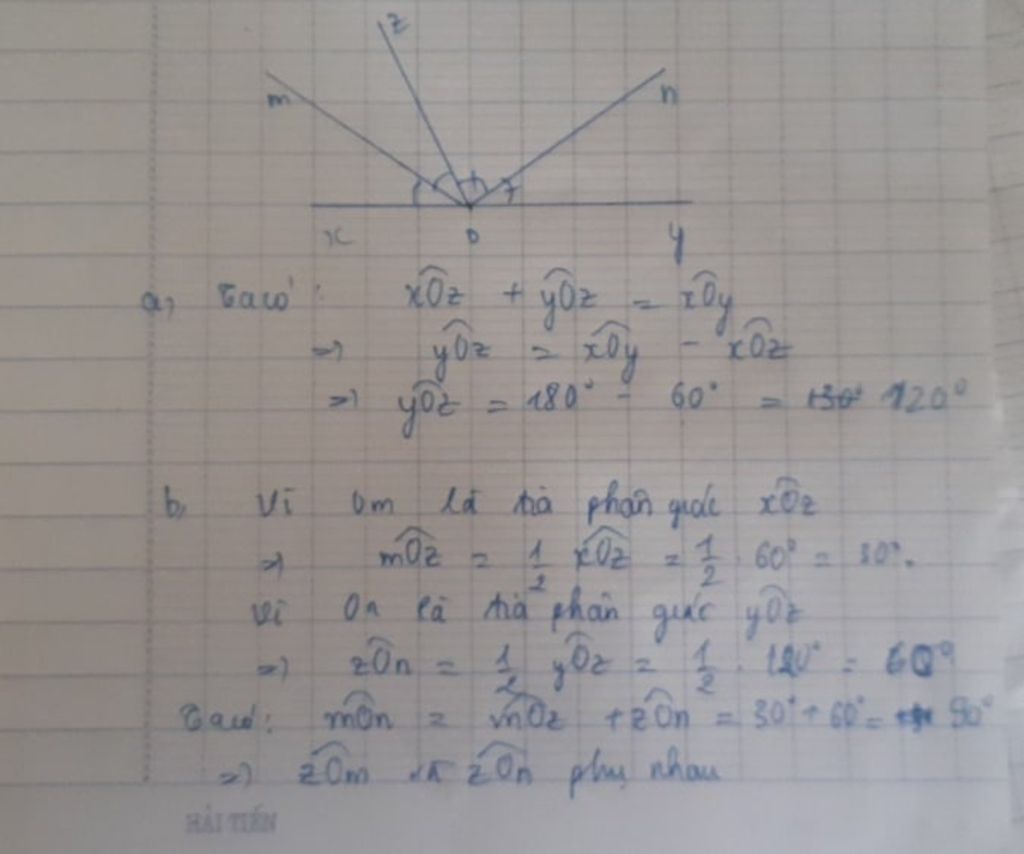 z
m n
x O y
a, Ta có: xÔz + yÔz = xÔy
=> yÔz = xÔy - xÔz
=> yÔz = 180° - 60° = 120°
b, Vì Om là tia phân giác xÔz
=> mÔz = 1/2 xÔz = 1/2 . 60° = 30°.
Vì On là tia phân giác yÔz
=> zÔn = 1/2 yÔz = 1/2 . 120° = 60°
Ta có: mÔn = mÔz + zÔn = 30° + 60° = 90°
=> zÔm và zÔn phụ nhau
HẢI TIẾN